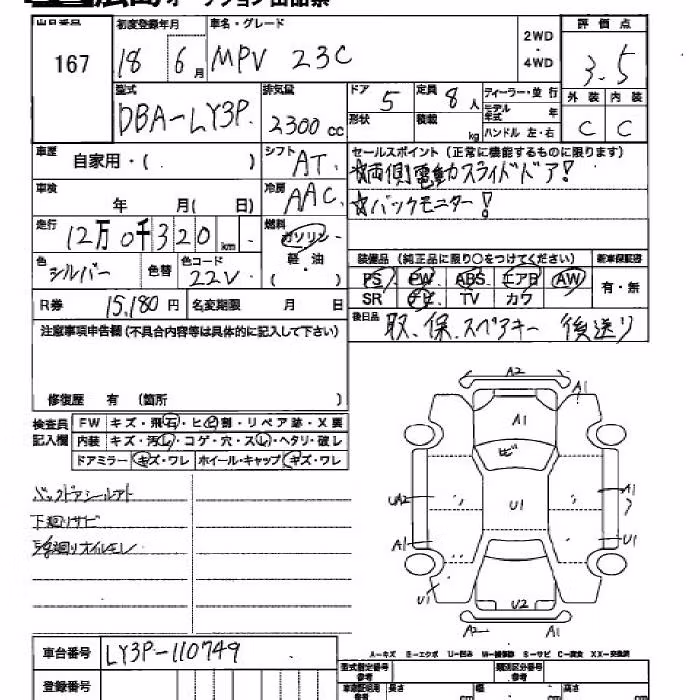 広島オークション出品票
出品番号 167
初度登録年月 18 6月
車名・グレード MPV 23C
2WD・4WD
評価点 3.5
外装 内装
C C
型式 DBA-LY3P
排気量 2300cc
ドア 5
定員 8人
形状
積載 kg
ディーラー・並行
モデル年式 年
ハンドル 左・右
車歴 自家用・( )
シフト AT
車検 年 月( 日)
冷房 AAC
走行 12万0千320km
燃料 ガソリン・軽・油 ( )
色 シルバー
色替
色コード 22V
セールスポイント (正常に機能するものに限ります)
☆両側電動スライドドア!
☆バックモニター!
装備品 (純正品に限り○をつけてください)
新車保証書
PS PW ABS エアB AW
SR ナビ TV カワ
有・無
R券 15,180円
名変期限 月 日
後日品 取、保、スペアキー 後送り
注意事項申告欄 (不具合内容等は具体的に記入して下さい)
修復歴 有 (箇所 )
検査員記入欄
FW キズ・飛石・ヒビ割・リペア跡・X要
内装 キズ・汚レ・コゲ・穴・スレ・ヘタリ・破レ
ドアミラー キズ・ワレ ホイール・キャップ キズ・ワレ
バックドアシールアト
下廻りサビ
A2
A1
A1
ビ
UA2
U1
A1
A1
U1
U1
U2
A2
A1
A-キズ E-エクボ U-凹み W-補修跡 S-サビ C-腐食 XX-交換済
車台番号 LY3P-110749
登録番号
型式指定番号
類別区分番号
車庫証明用参考
長さ cm 幅 cm 高さ cm